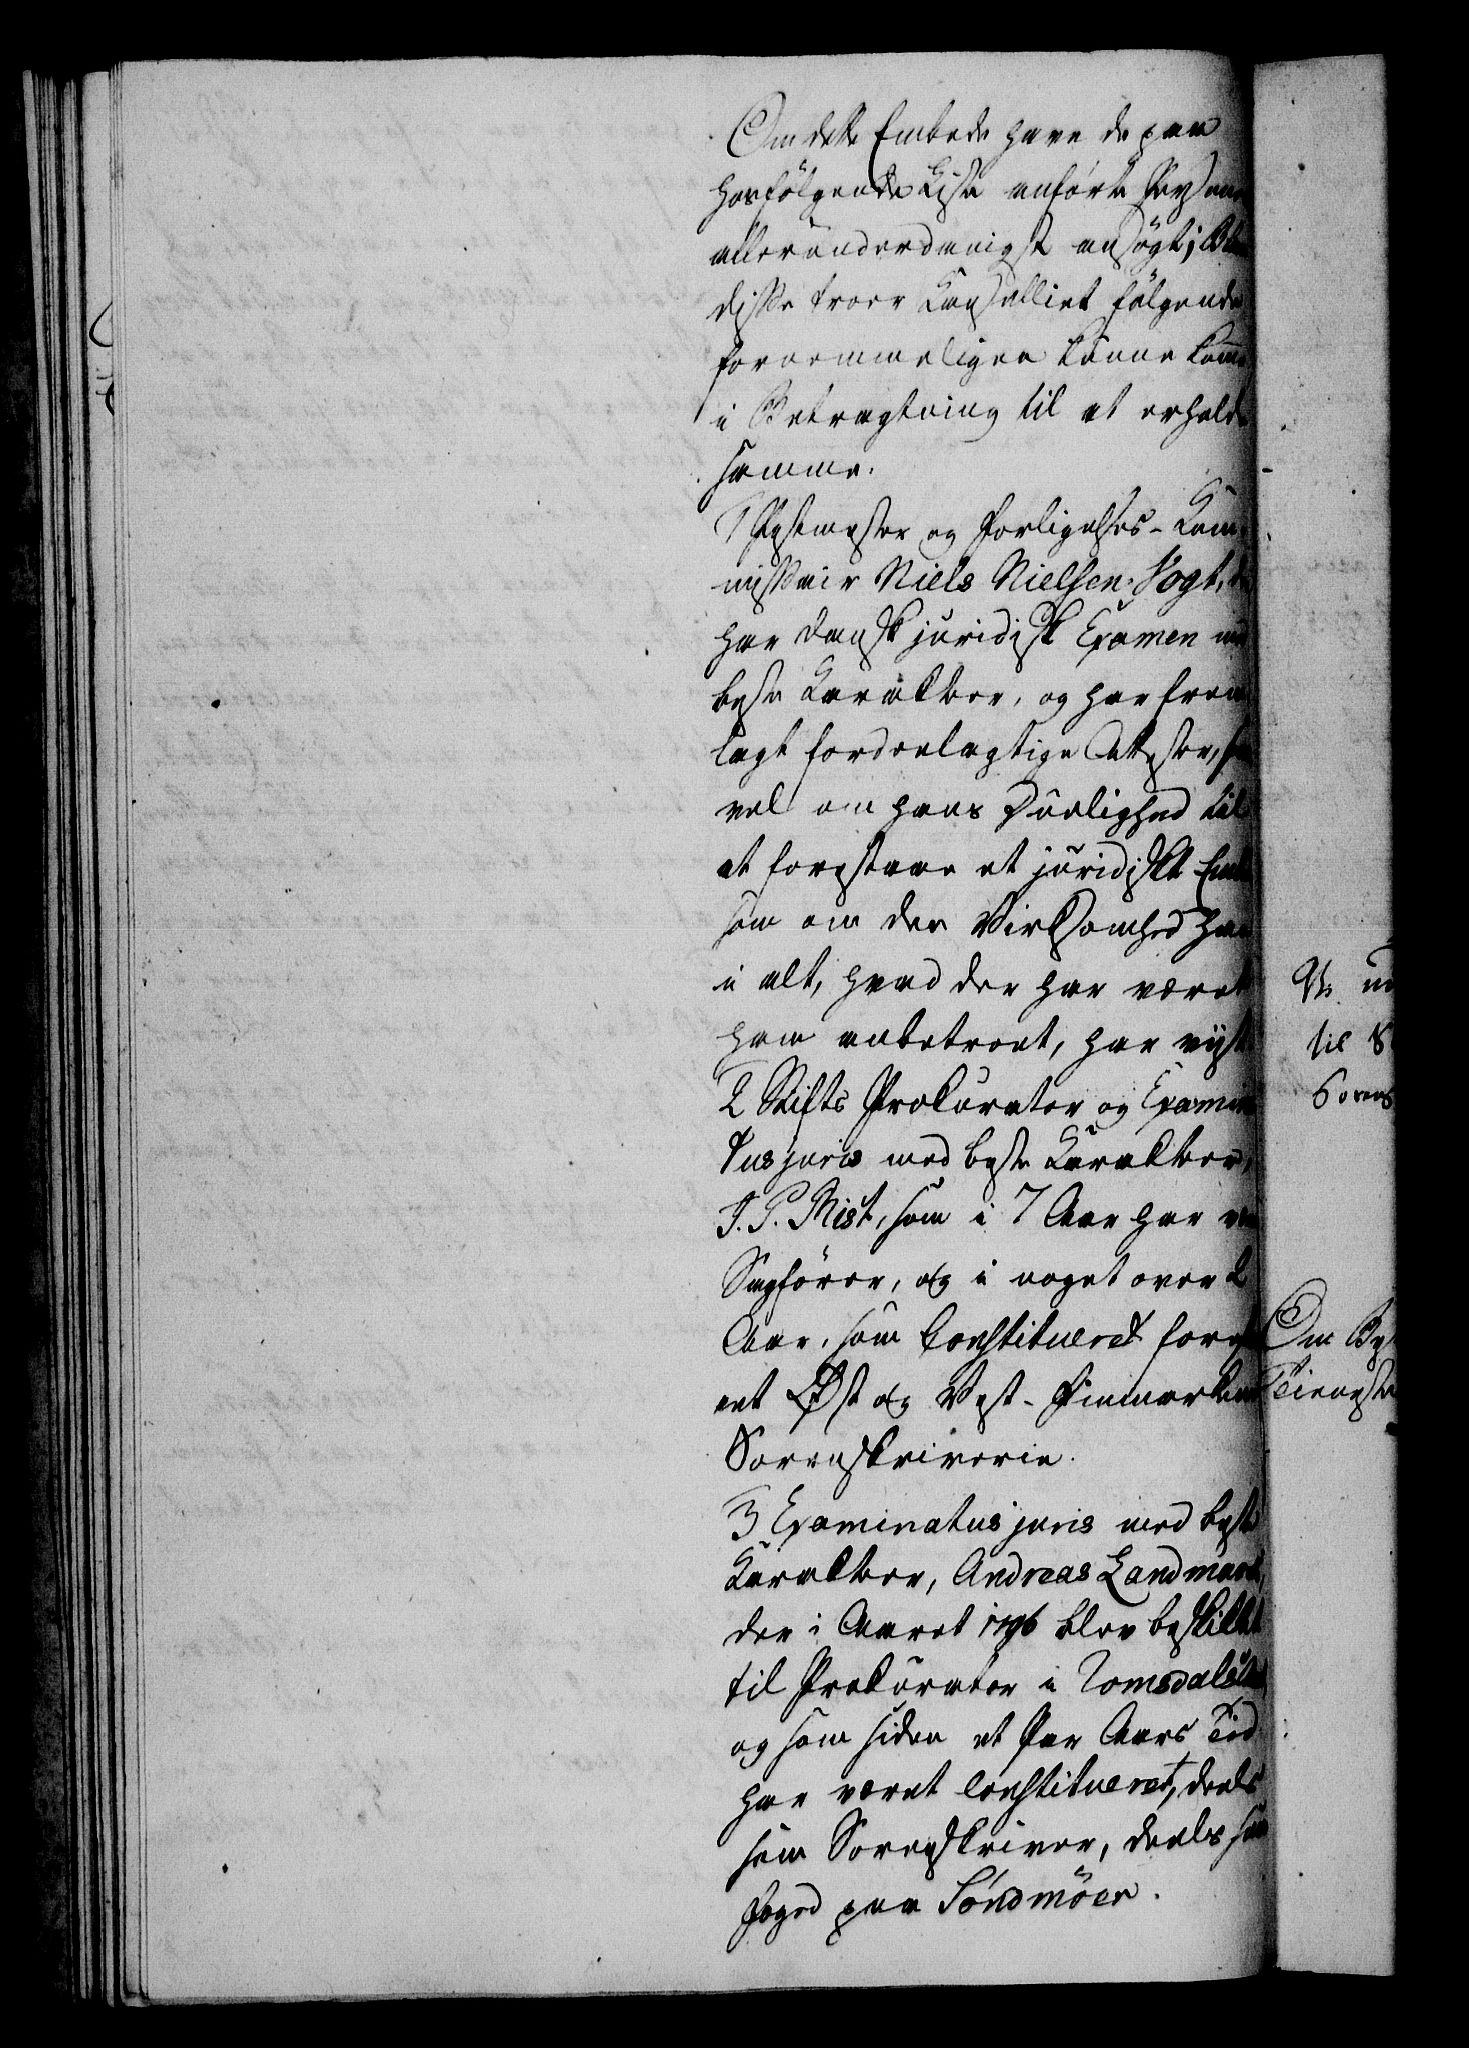 Om dette Embede have de paa
hosfølgende Liste anførte Personer
allerunderdanigst ansøgt; Blant
disse troer Kanselliet følgende
fornemmeligen kunne komme
i Betragtning til at erholde
samme.
1 Postmester og Forligelses-Kom-
missair Niels Nielsen Vogt, der
har dansk juridisk Examen med
beste Karakter, og har frem-
lagt fordeelagtige Attester, saa
vel om hans Duelighed til
at forestaae et juridiskt Embede
som om den Virksomhed han
i alt, hvad der har været
ham anbetroet, har viist
2 Stifts Prokurator og Examina-
tus juris med beste Karakter,
J. P. Rist, som i 7 Aar har været
Sagfører, og i noget over 2
Aar, som Constitueret forest-
aaet Øst og Vest-Finmarkens
Sorenskriverie.
3 Examinatus juris med beste
Karakter, Andreas Landmark,
der i Aaret 1796 blev beskikket
til Prokurator i Romsdals Amt,
og som siden et Par Aars Tid
har været constitueret, deels
som Sorenskriver, deels som
Foged paa Søndmöer.
til S
Sorens
Om By
Tieneste